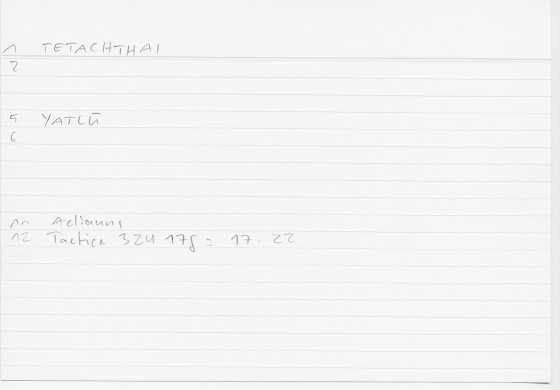 1 TETACHTHAI
2
5 YATLŪ
6
11 Aelianus
12 Tactica 324 17f = 17. 22